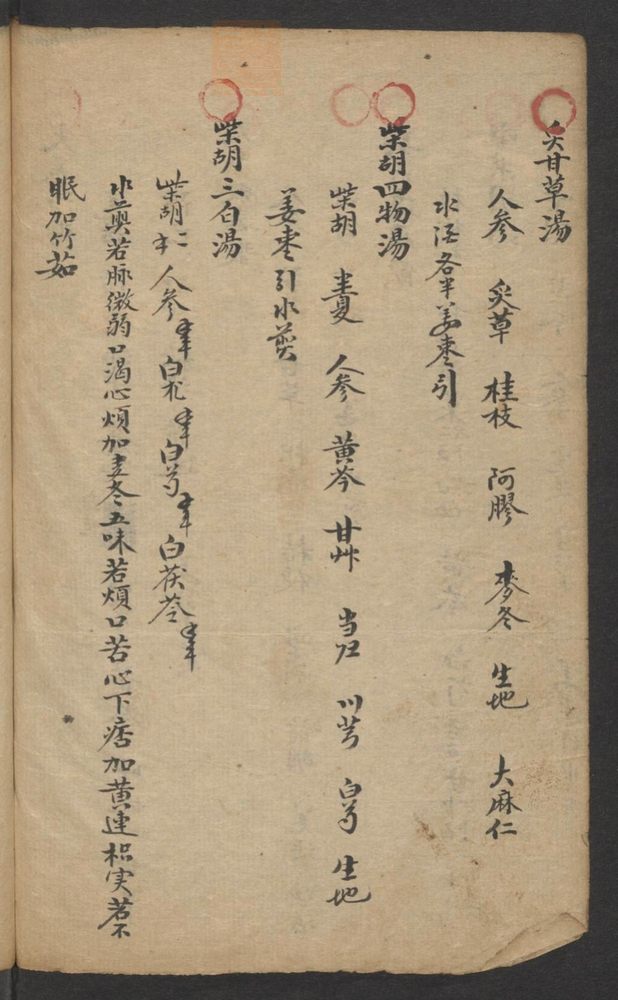 炙甘草湯
人参 炙草 桂枝 阿膠 麥冬 生地 大麻仁
水酒各半姜枣引
柴胡四物湯
柴胡 半夏 人参 黄芩 甘艸 当归 川芎 白芍 生地
姜枣引水煎
柴胡三白湯
柴胡 二 人参 白朮 白芍 白茯苓
水煎若脉微弱口渴心烦加麦冬五味若烦口苦心下痞加黄連枳实若不
眠加竹茹